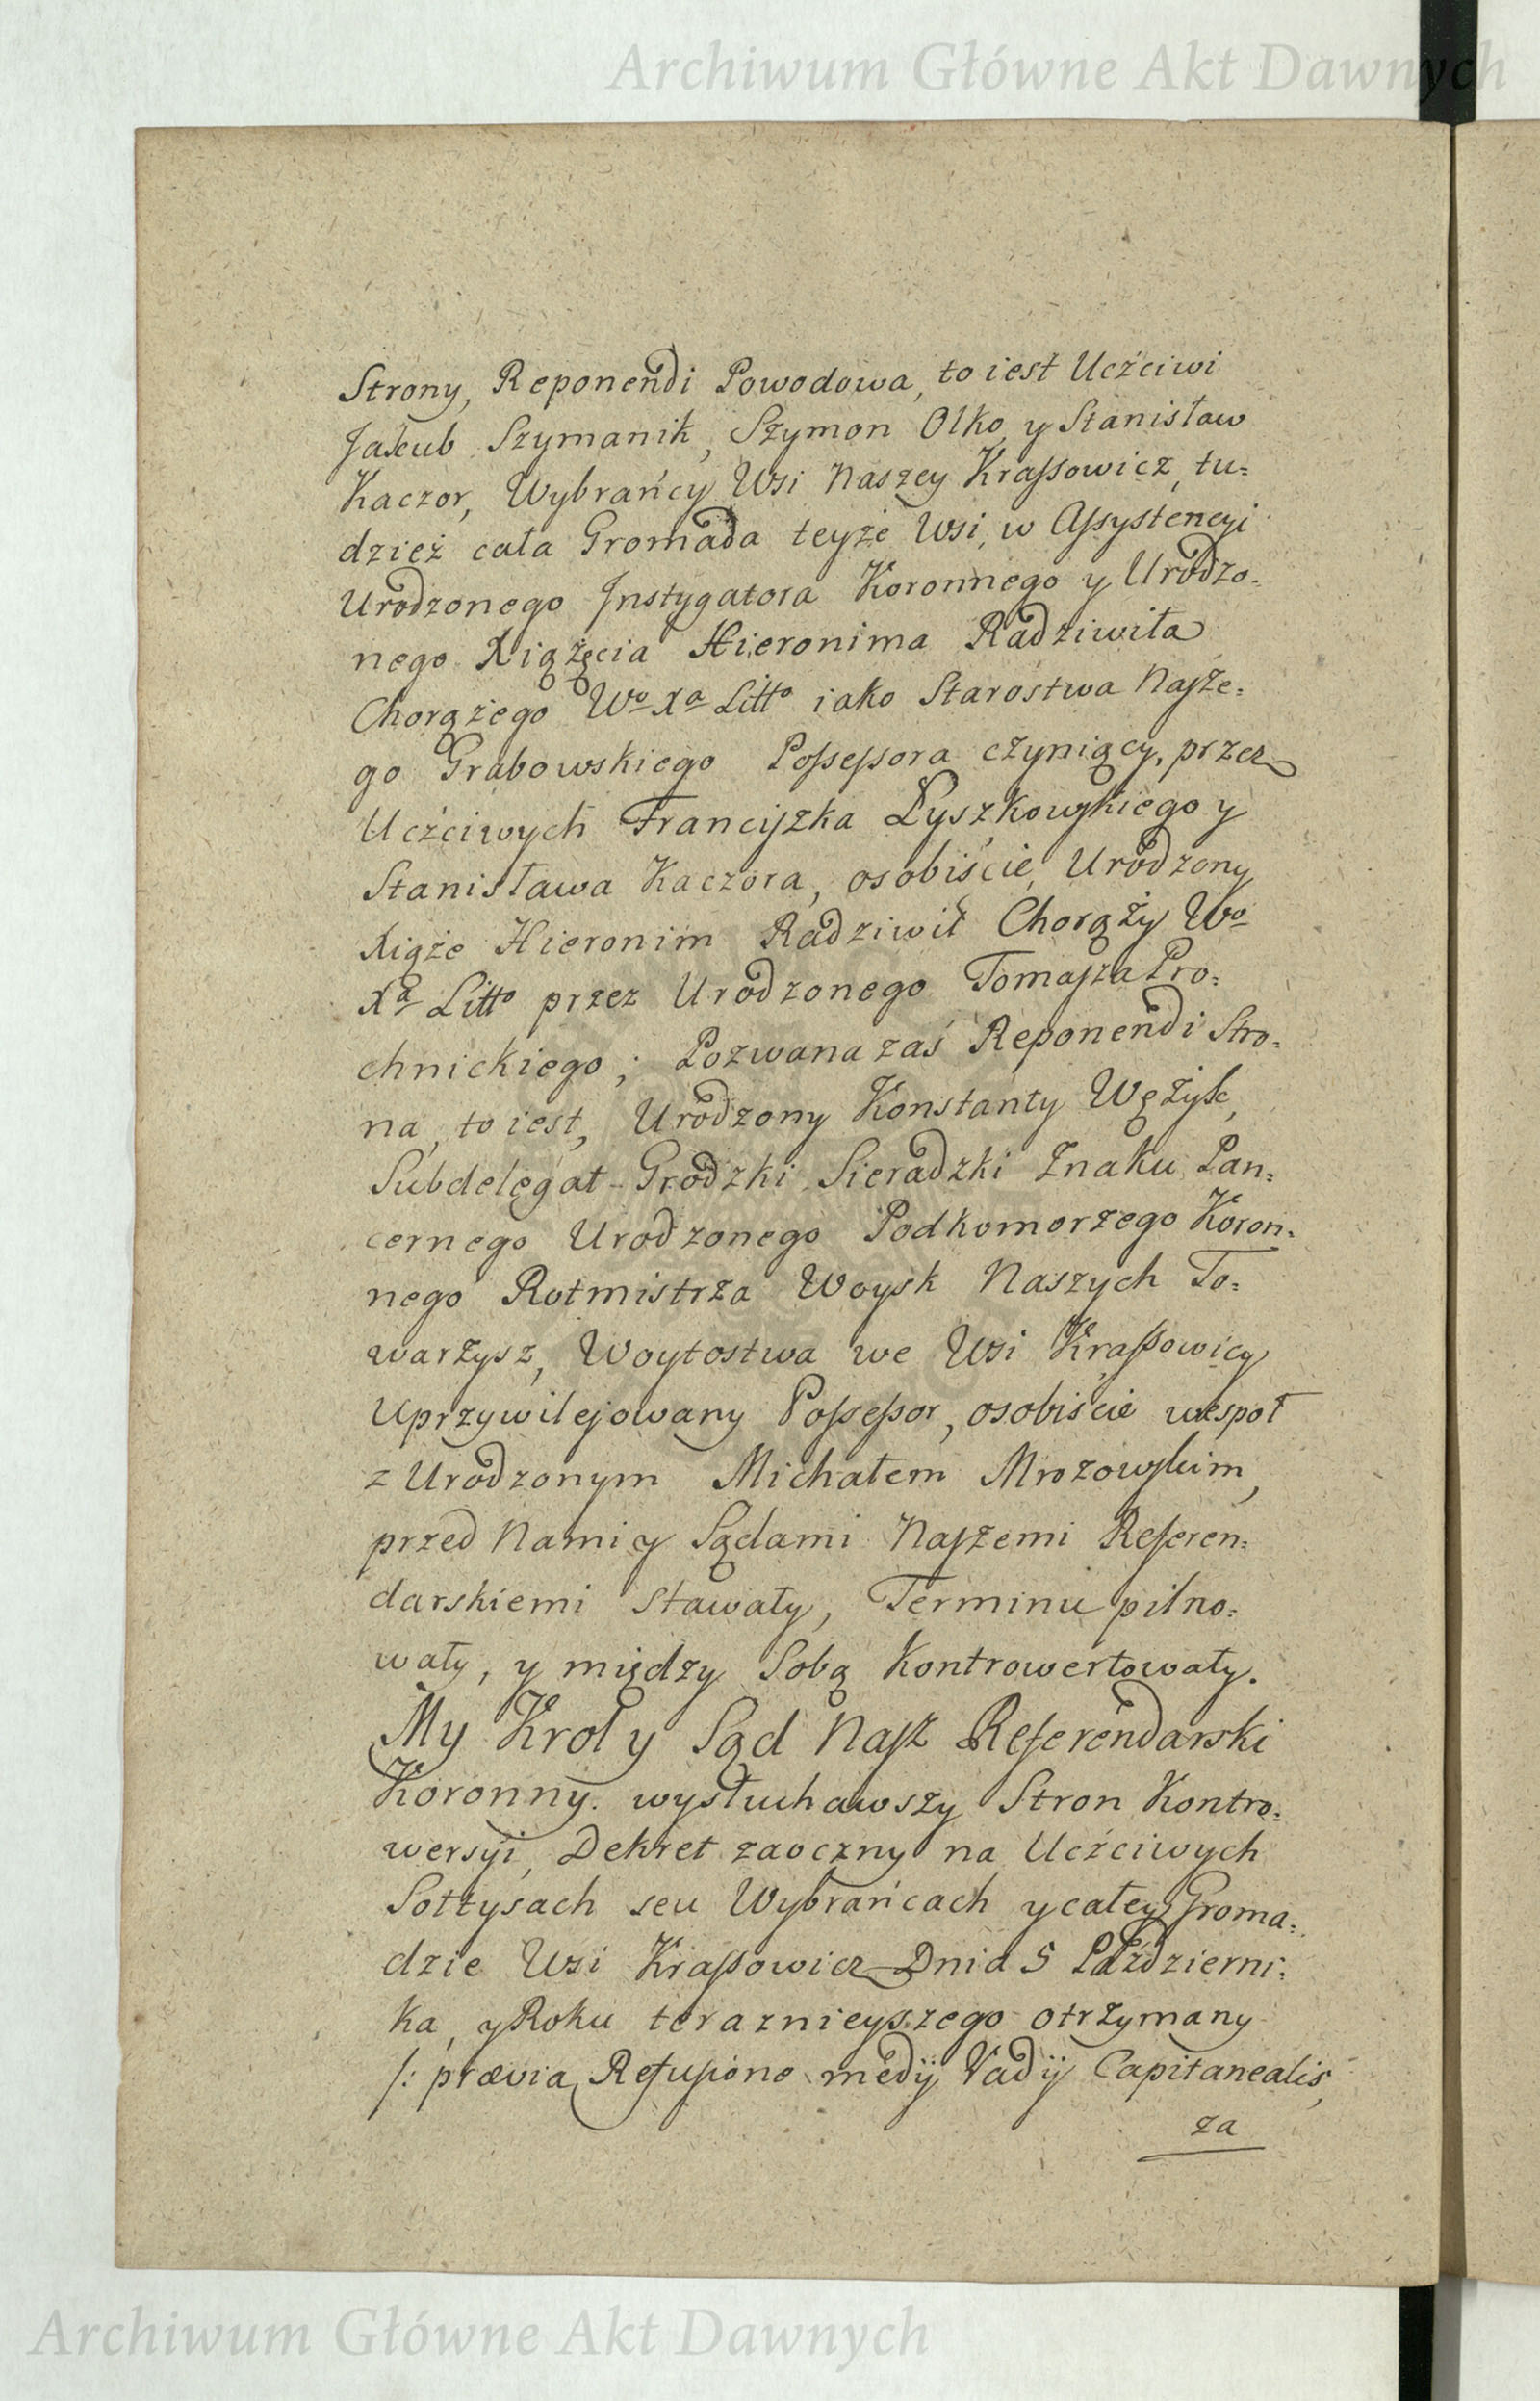 Archiwum Główne Akt Dawnych
Strony, Reponendi Powodowa, to iest Uczciwi
Jakub Szymanik, Szymon Olko y Stanisław
Kaczor, Wybrańcy Wsi Naszey Krassowicz, tu=
dzież cała Gromada teyże Wsi, w Assystencyi
Urodzonego Instygatora Koronnego y Urodzo=
nego Xiążęcia Hieronima Radziwiła
Chorążego Wo Xa Litto iako Starostwa Nasze=
go Grabowskiego Possessora czyniący, przez
Uczciwych Franciszka Łyszkowskiego y
Stanisława Kaczora, osobiście, Urodzony
Xiąże Hieronim Radziwił Chorąży Wo
Xa Litto przez Urodzonego Tomasza Pro=
chnickiego; Pozwana zaś Reponendi Stro=
na, to iest, Urodzony Konstanty Wężyk,
Subdelegat Grodzki Sieradzki Znaku Pan=
cernego Urodzonego Podkomorzego Koron=
nego Rotmistrza Woysk Naszych To=
warzysz, Woytostwa we Wsi Krassowicy
Uprzywilejowany Possessor, osobiście wespoł
z Urodzonym Michałem Mrozowskim,
przed Nami y Sądami Naszemi Referen=
darskiemi stawały, Terminu pilno=
wały, y między Sobą Kontrowertowały.
My Krol y Sąd Nasz Referendarski
Koronny. wysłuchawszy Stron Kontro=
wersyi, Dekret zaoczny na Uczciwych
Sołtysach seu Wybrańcach y całey Groma=
dzie Wsi Krassowicz Dnia 5 Październi=
ka, y Roku teraznieyszego otrzymany
/: prævia Refusione medij Vadij Capitanealis,
za
Archiwum Główne Akt Dawnych